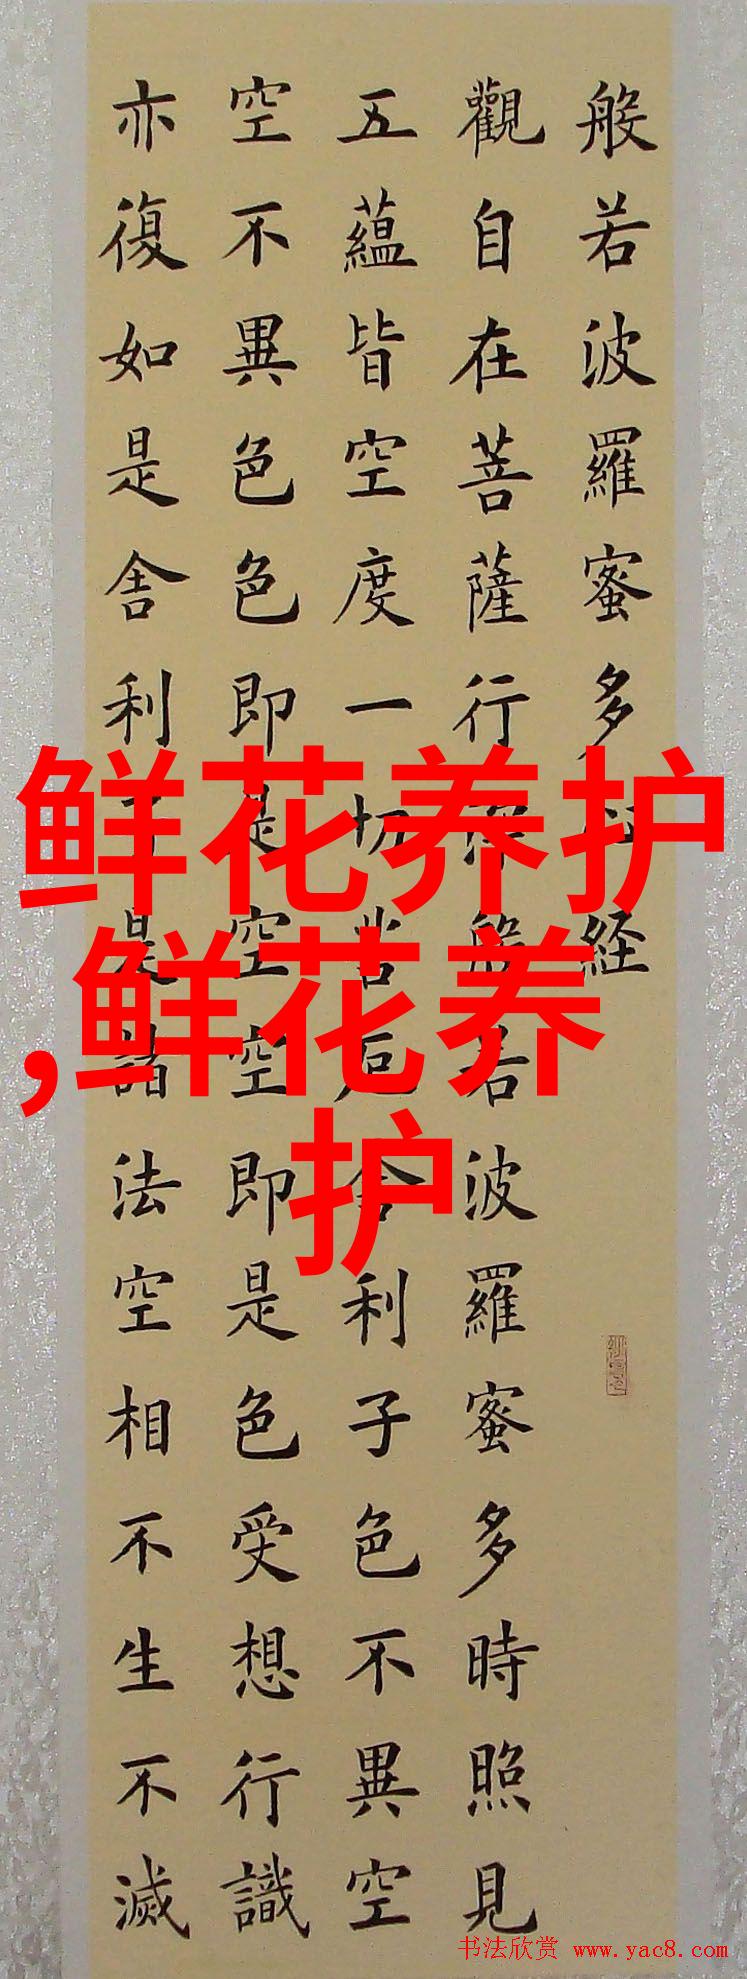 般若波羅蜜多心経
觀自在菩薩行深般若波羅蜜多時照見
五蘊皆空度一切苦厄舍利子色不異空
空不異色色即是空空即是色受想行識
亦復如是舍利子是諸法空相不生不滅
鲜花养护
,鲜花养
护
书法欣赏 www.yac8.com